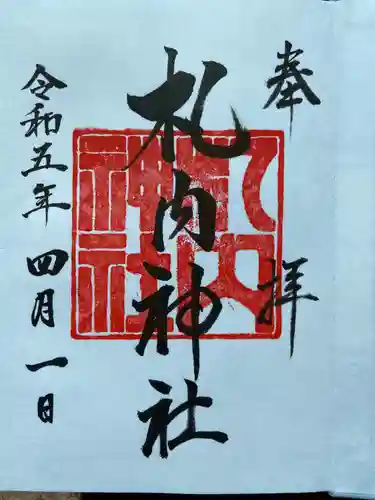 奉拝
札内神社
令和五年四月一日